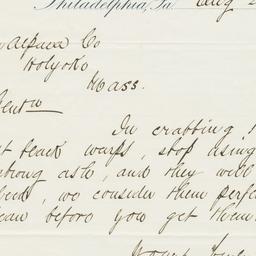 Philadelphia, Pa Aug 2
Alpaca Co
Holyoke
Mass.
Gents
In crabbing
t black warps, stop using
strong ash, and they will
, we consider them perfe
ean before you get them